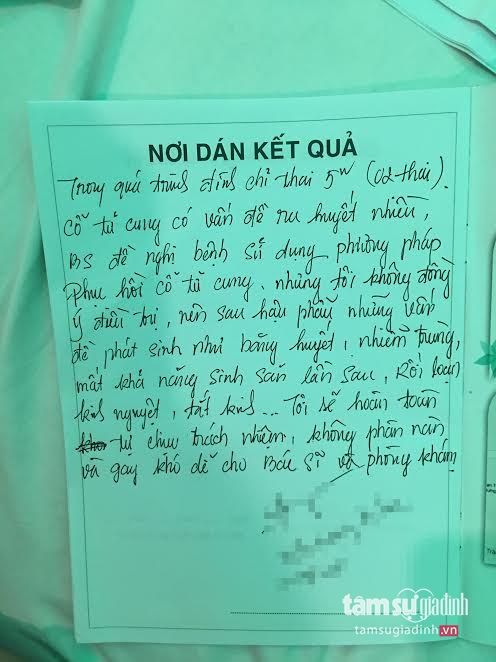 NƠI DÁN KẾT QUẢ
Trong quá trình đình chỉ thai 5w (02 thai).
Cổ tử cung có vấn đề ra huyết nhiều,
BS đề nghị bệnh sử dụng phương pháp
phục hồi cổ tử cung, nhưng tôi không đồng
ý điều trị, nên sau hậu phẫu những vấn
đề phát sinh như băng huyết, nhiễm trùng,
mất khả năng sinh sản lần sau, Rối loạn
kinh nguyệt, tắt kinh... Tôi sẽ hoàn toàn
tự chịu trách nhiệm, không phàn nàn
và gây khó dễ cho Bác sĩ và phòng khám
tâmsựgiađình
tamsugiadinh.vn